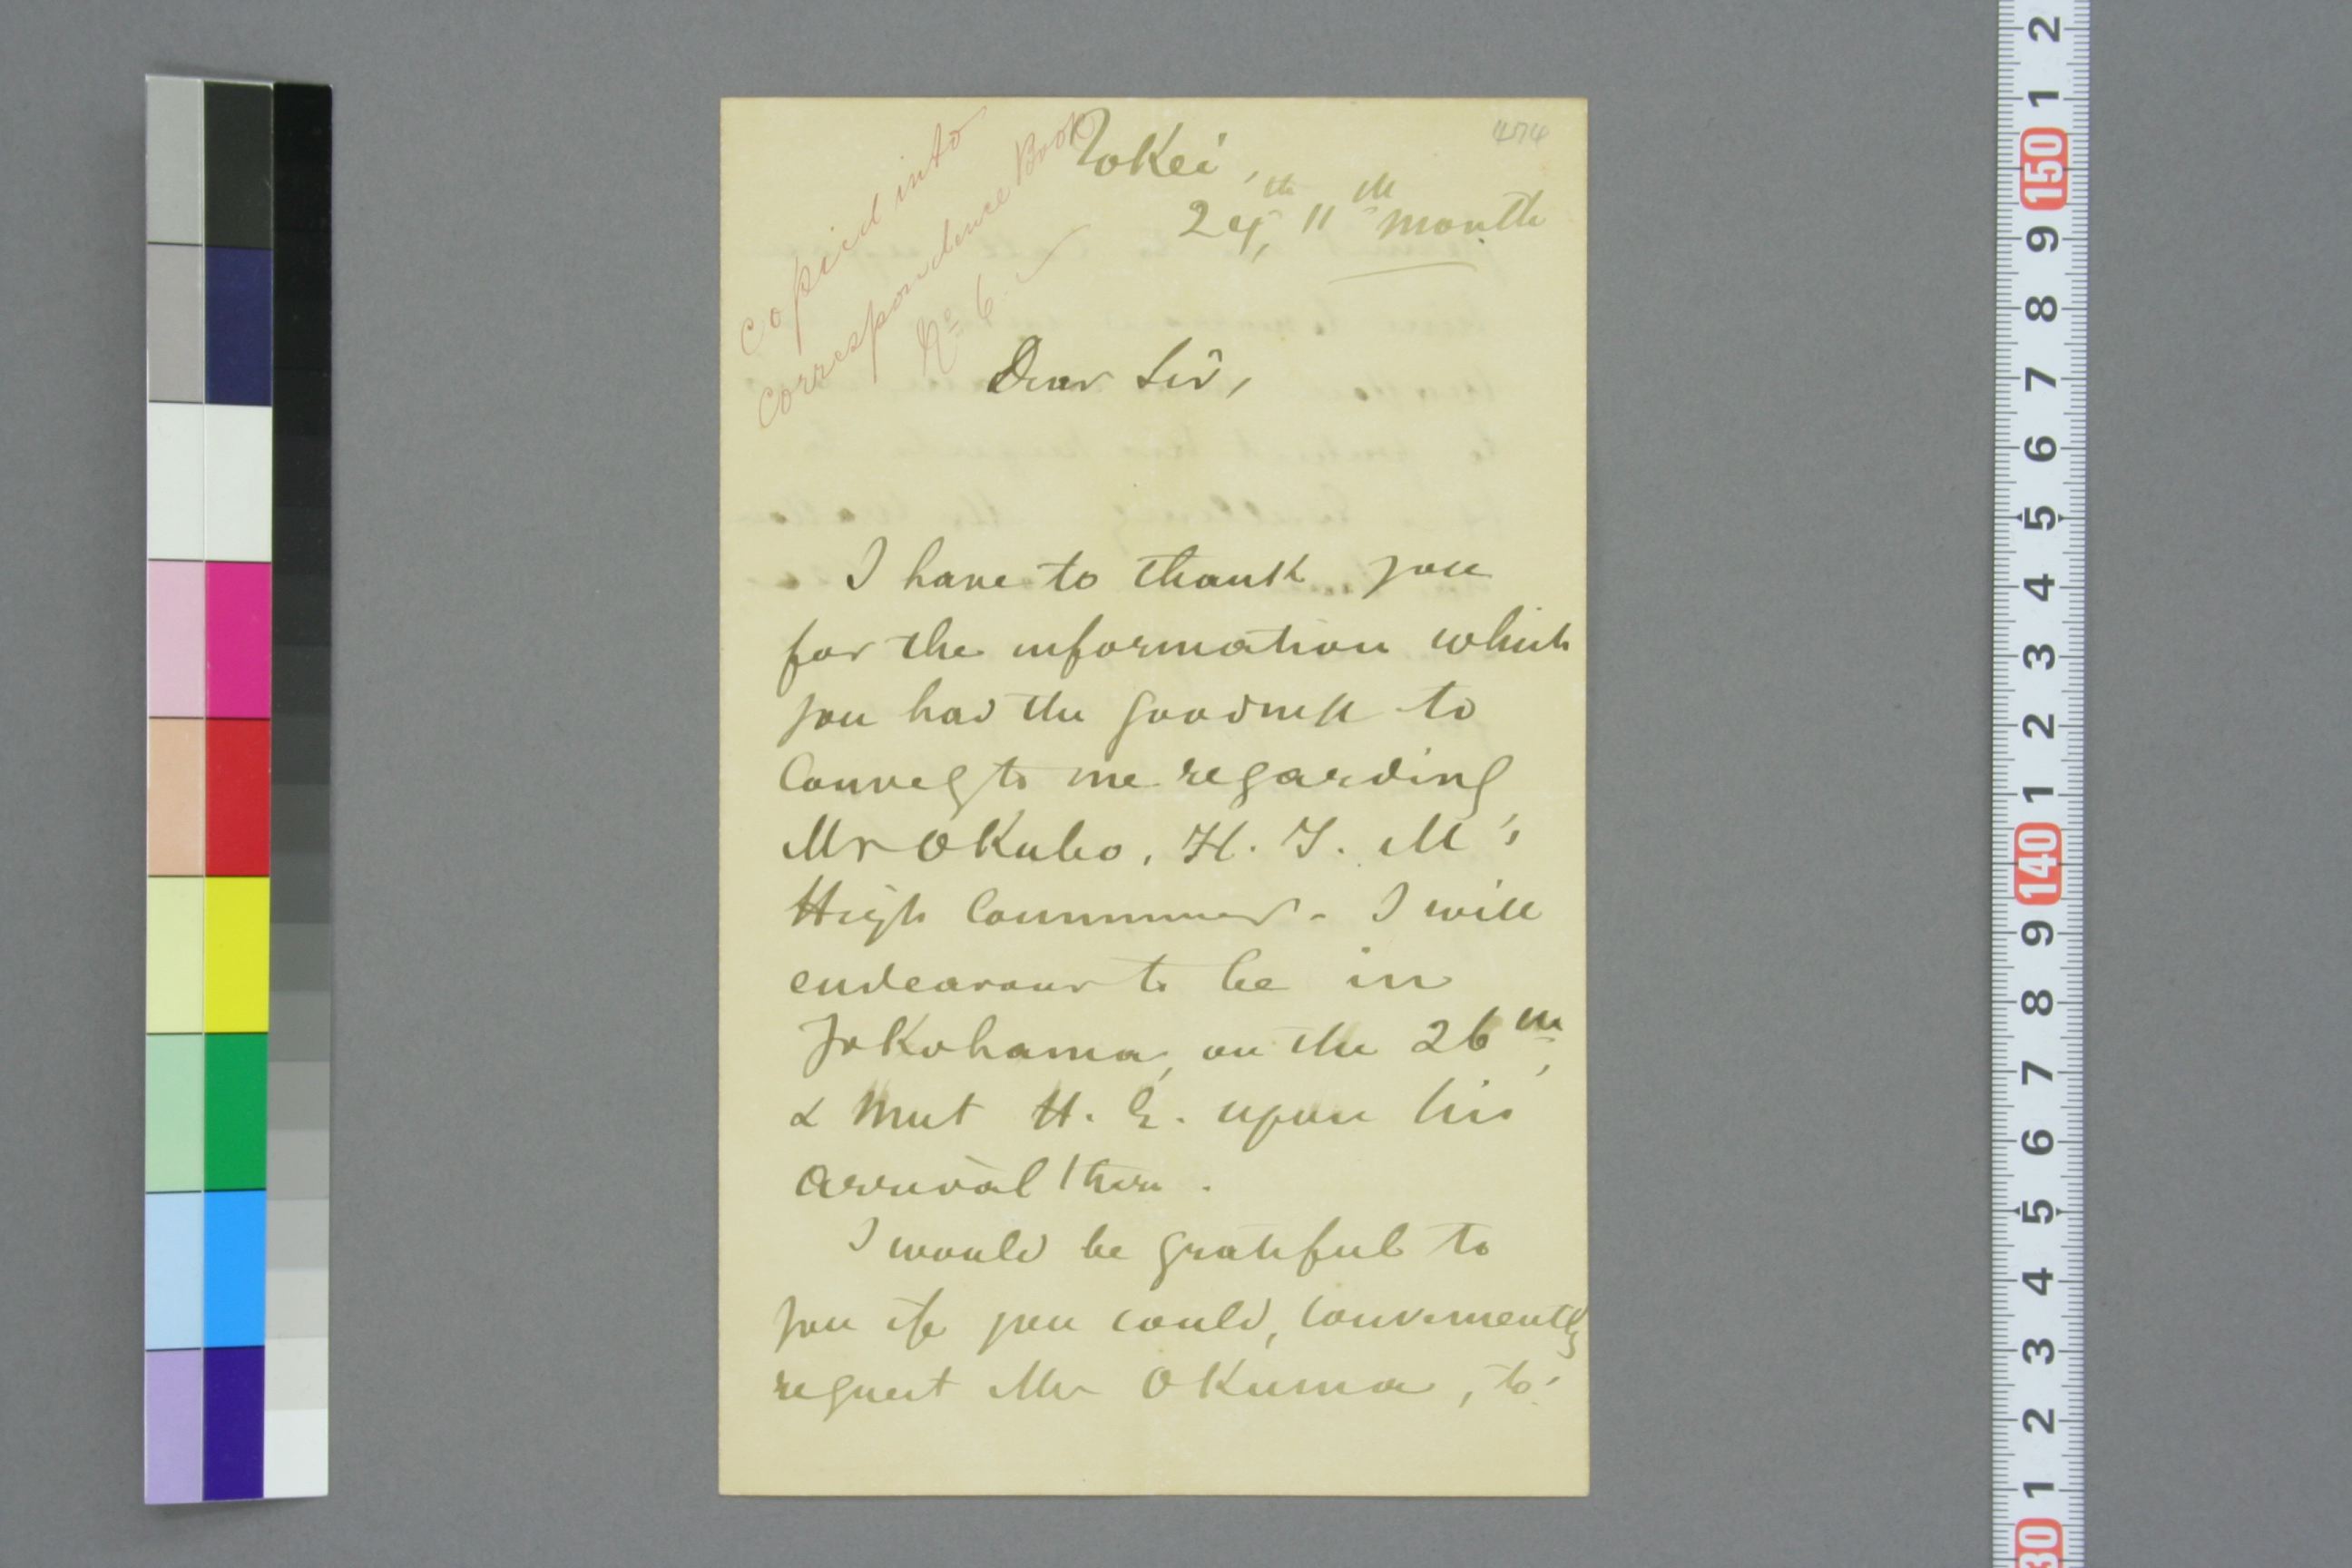 474
Copied into
Correspondence Book
No 6.
Tokei,
24th, 11th month
Dear Sir,
I have to thank you
for the information which
you had the goodness to
Convey to me regarding
Mr Okubo, H. I. M's
High Commissioner. I will
endeavour to be in
Yokohama, on the 26th,
& meet H. E. upon his
arrival there.
I would be grateful to
you if you could, conveniently
request Mr Okuma, to
2
1
150
9
8
7
6
5
4
3
2
1
140
9
8
7
6
5
4
3
2
1
30